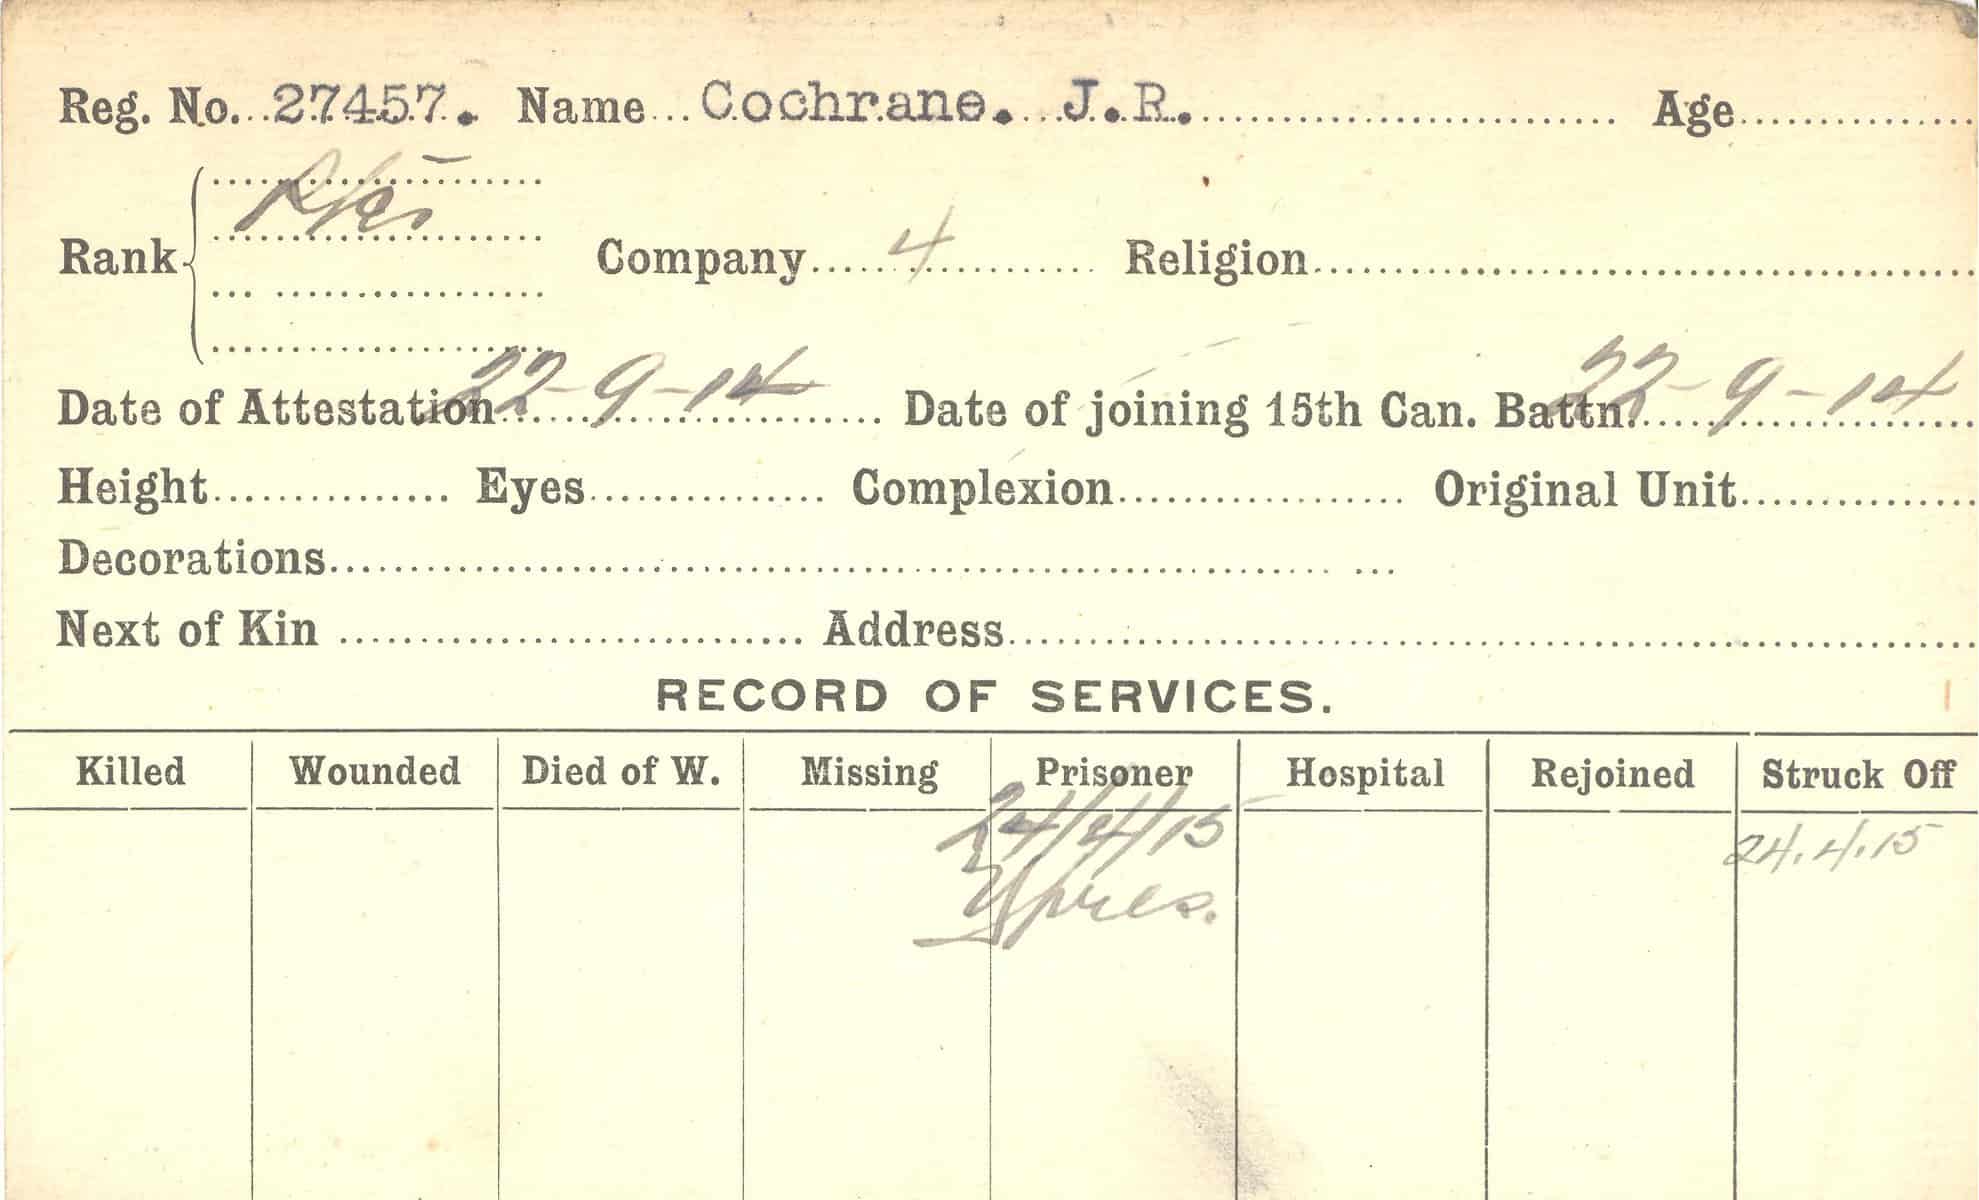 Reg. No. 27457. Name Cochrane. J.R. Age
Rank Company 4 Religion
Date of Attestation 22-9-14 Date of joining 15th Can. Battn. 22-9-14
Height Eyes Complexion Original Unit
Decorations
Next of Kin Address
RECORD OF SERVICES.
Killed Wounded Died of W. Missing Prisoner Hospital Rejoined Struck Off
24/4/15 24.4.15
Ypres.